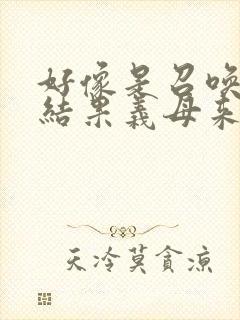 好像是召喚
結果義母來
天冷莫貪涼